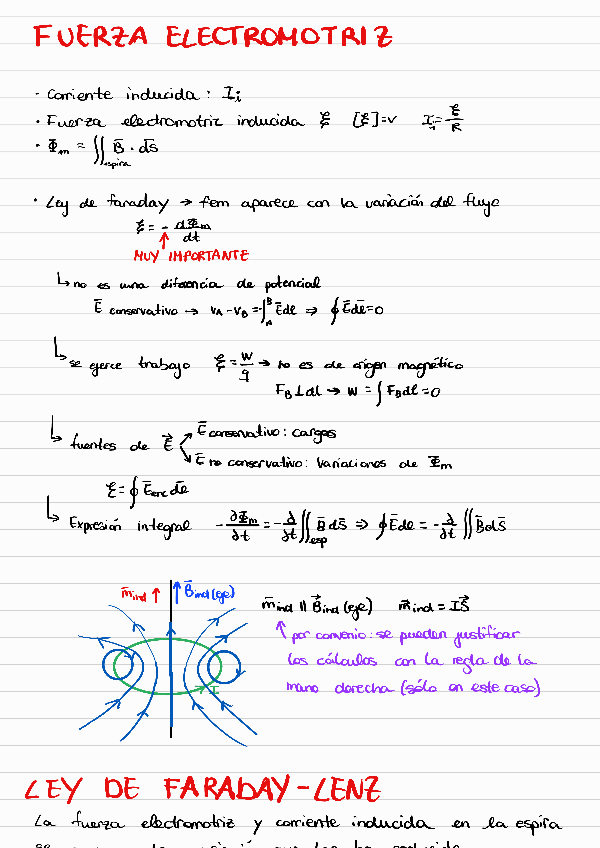 FUERZA ELECTROMOTRIZ
· Corriente inducida: Iᵢ
· Fuerza electromotriz inducida ξ [ξ]=V Iᵢ=ξ/R
· Φm = ∬espira B̄ · dS̄
· Ley de faraday → fem aparece con la variación del flujo
ξ = - dΦm/dt
MUY IMPORTANTE
↳ no es una diferencia de potencial
Ē conservativo → VA - VB = -∫_A^B Ēdl ⇒ ∮ Ēdl̄=0
↳ se ejerce trabajo ξ = W/q → no es de origen magnético
F_B ⊥ dl → W = ∫ F_B dl = 0
↳ fuentes de E⃗
Ē conservativo: cargas
Ē no conservativo: variaciones de Φm
ξ = ∮ Ēnc dl̄
↳ Expresión integral -∂Φm/∂t = -∂/∂t ∬esp B̄ dS̄ ⇒ ∮ Ēdl = -∂/∂t ∬ B̄dS̄
m̄ind ↑ ↑ B̄ind (eje)
m̄ind || B⃗ind (eje) m̄ind = IS⃗
↑ por convenio: se pueden justificar
los cálculos con la regla de la
mano derecha (sólo en este caso)
I
LEY DE FARADAY-LENZ
La fuerza electromotriz y corriente inducida en la espira